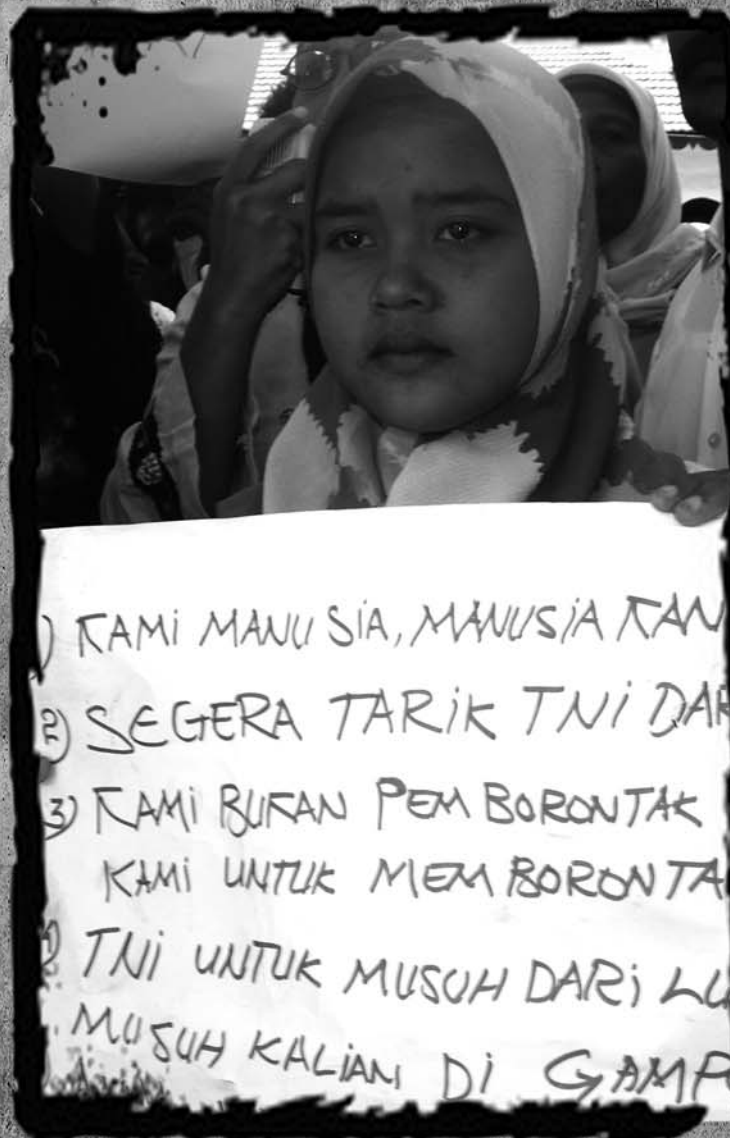 KAMi MANUSiA, MANUSiA KAN
2) SEGERA TARiK TNi DAR
3) KAMi BUKAN PEMBORONTAK
KAMi UNTUK MEMBORONTA
TNi UNTUK MUSUH DARi LU
MUSUH KALiAN Di GAMP